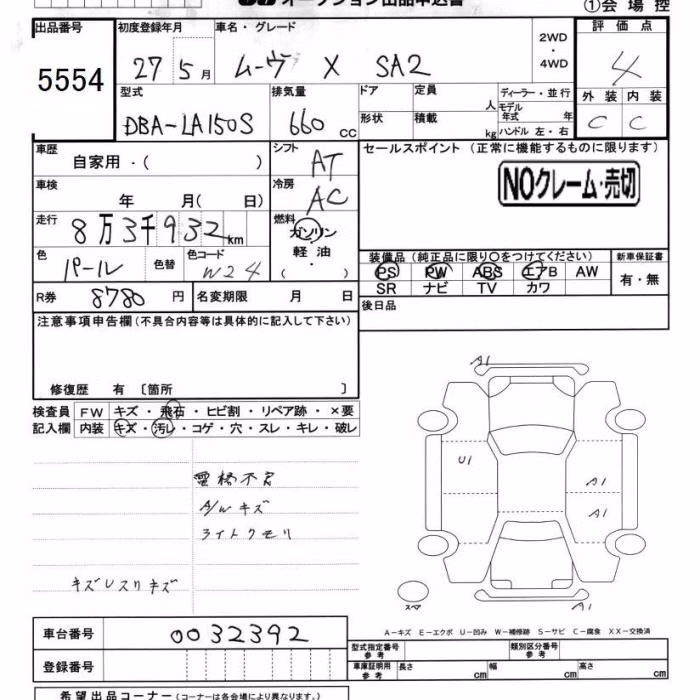 オークション出品申込書
①会場控
出品番号
5554
初度登録年月
27 5月
車名・グレード
ムーヴ X SA2
2WD
・
4WD
評価点
4
外装 内装
C C
型式
DBA-LA150S
排気量
660 cc
ドア 定員 人
形状 積載 kg
ディーラー・並行
モデル年式 年
ハンドル 左・右
車歴
自家用・( )
シフト
AT
セールスポイント (正常に機能するものに限ります)
NOクレーム・売切
車検
年 月( 日)
冷房
AC
走行
8万3千932km
燃料
ガソリン
軽油
・( )
色
パール
色替
色コード
W24
装備品 (純正品に限り○をつけてください)
PS PW ABS エアB AW
SR ナビ TV カワ
新車保証書
有・無
R券
8780円
名変期限 月 日
後日品
注意事項申告欄(不具合内容等は具体的に記入して下さい)
修復歴 有 〔箇所 〕
検査員記入欄
FW キズ・飛石・ヒビ割・リペア跡・×要
内装 キズ・汚レ・コゲ・穴・スレ・キレ・破レ
A/W キズ
ライトクモリ
キズレスリキズ
A1
U1
A1
A1
A1
スペア
A-キズ E-エクボ U-凹み W-補修跡 S-サビ C-腐食 XX-交換済
車台番号
0032392
登録番号
型式指定番号
参考
類別区分番号
参考
車庫証明用
参考
長さ cm
幅 cm
高さ cm
希望出品コーナー(コーナーは各会場により異なります。)